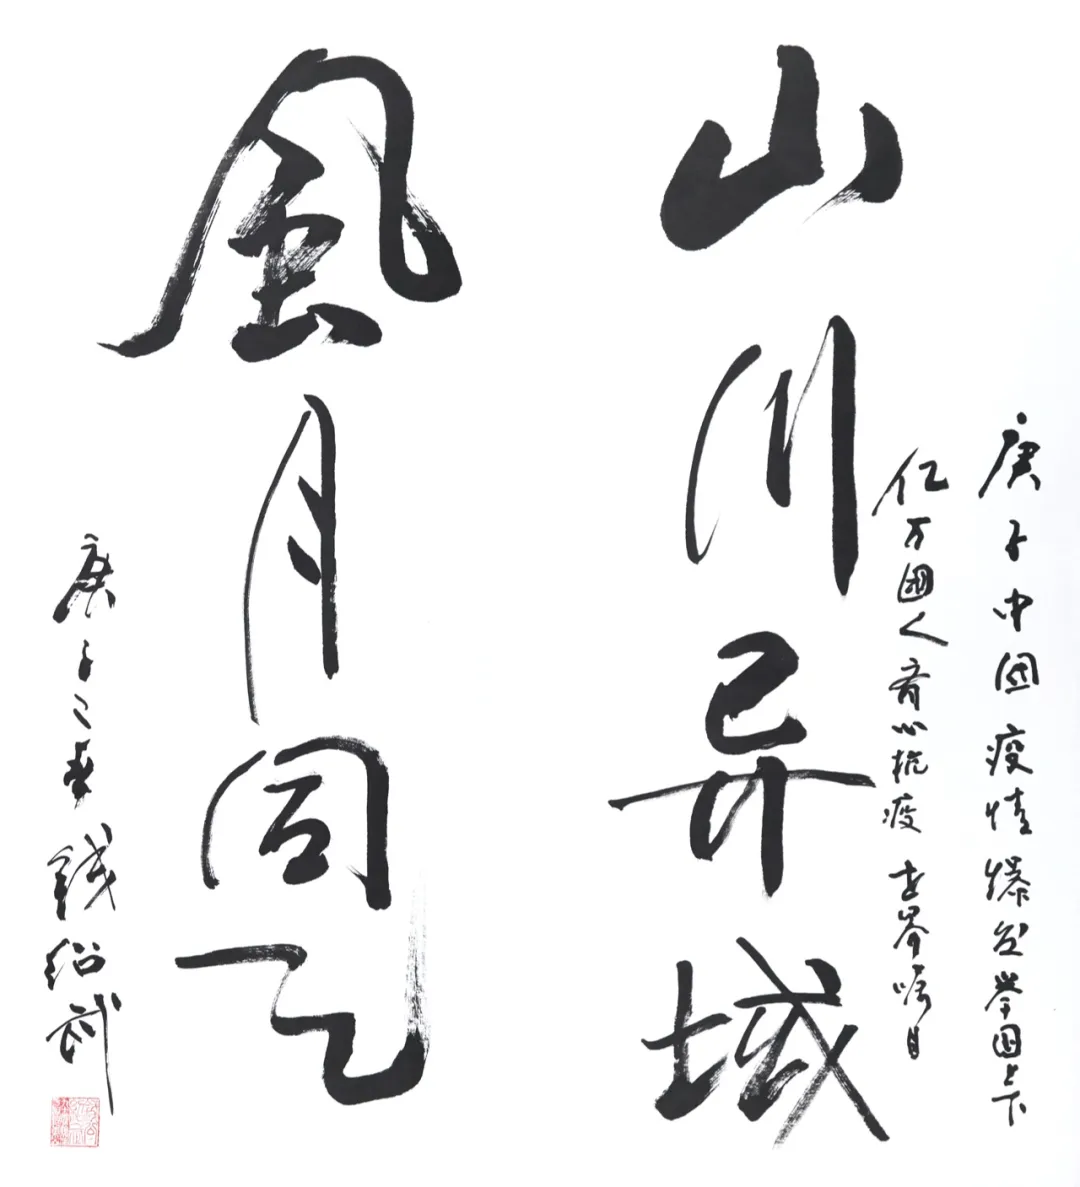 庚子中国疫情爆发举国上下
亿万國人齐心抗疫 世界瞩目
山川异域
風月同天
庚子之春 錢紹武